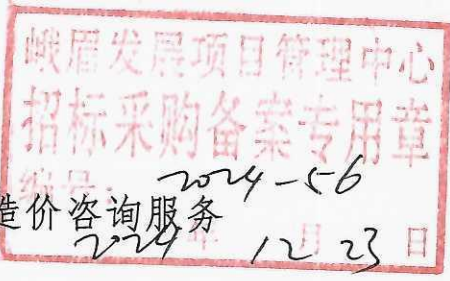 峨眉发展项目管理中心
招标采购备案专用章
编号：2024-56
造价咨询服务
2024年12月23日